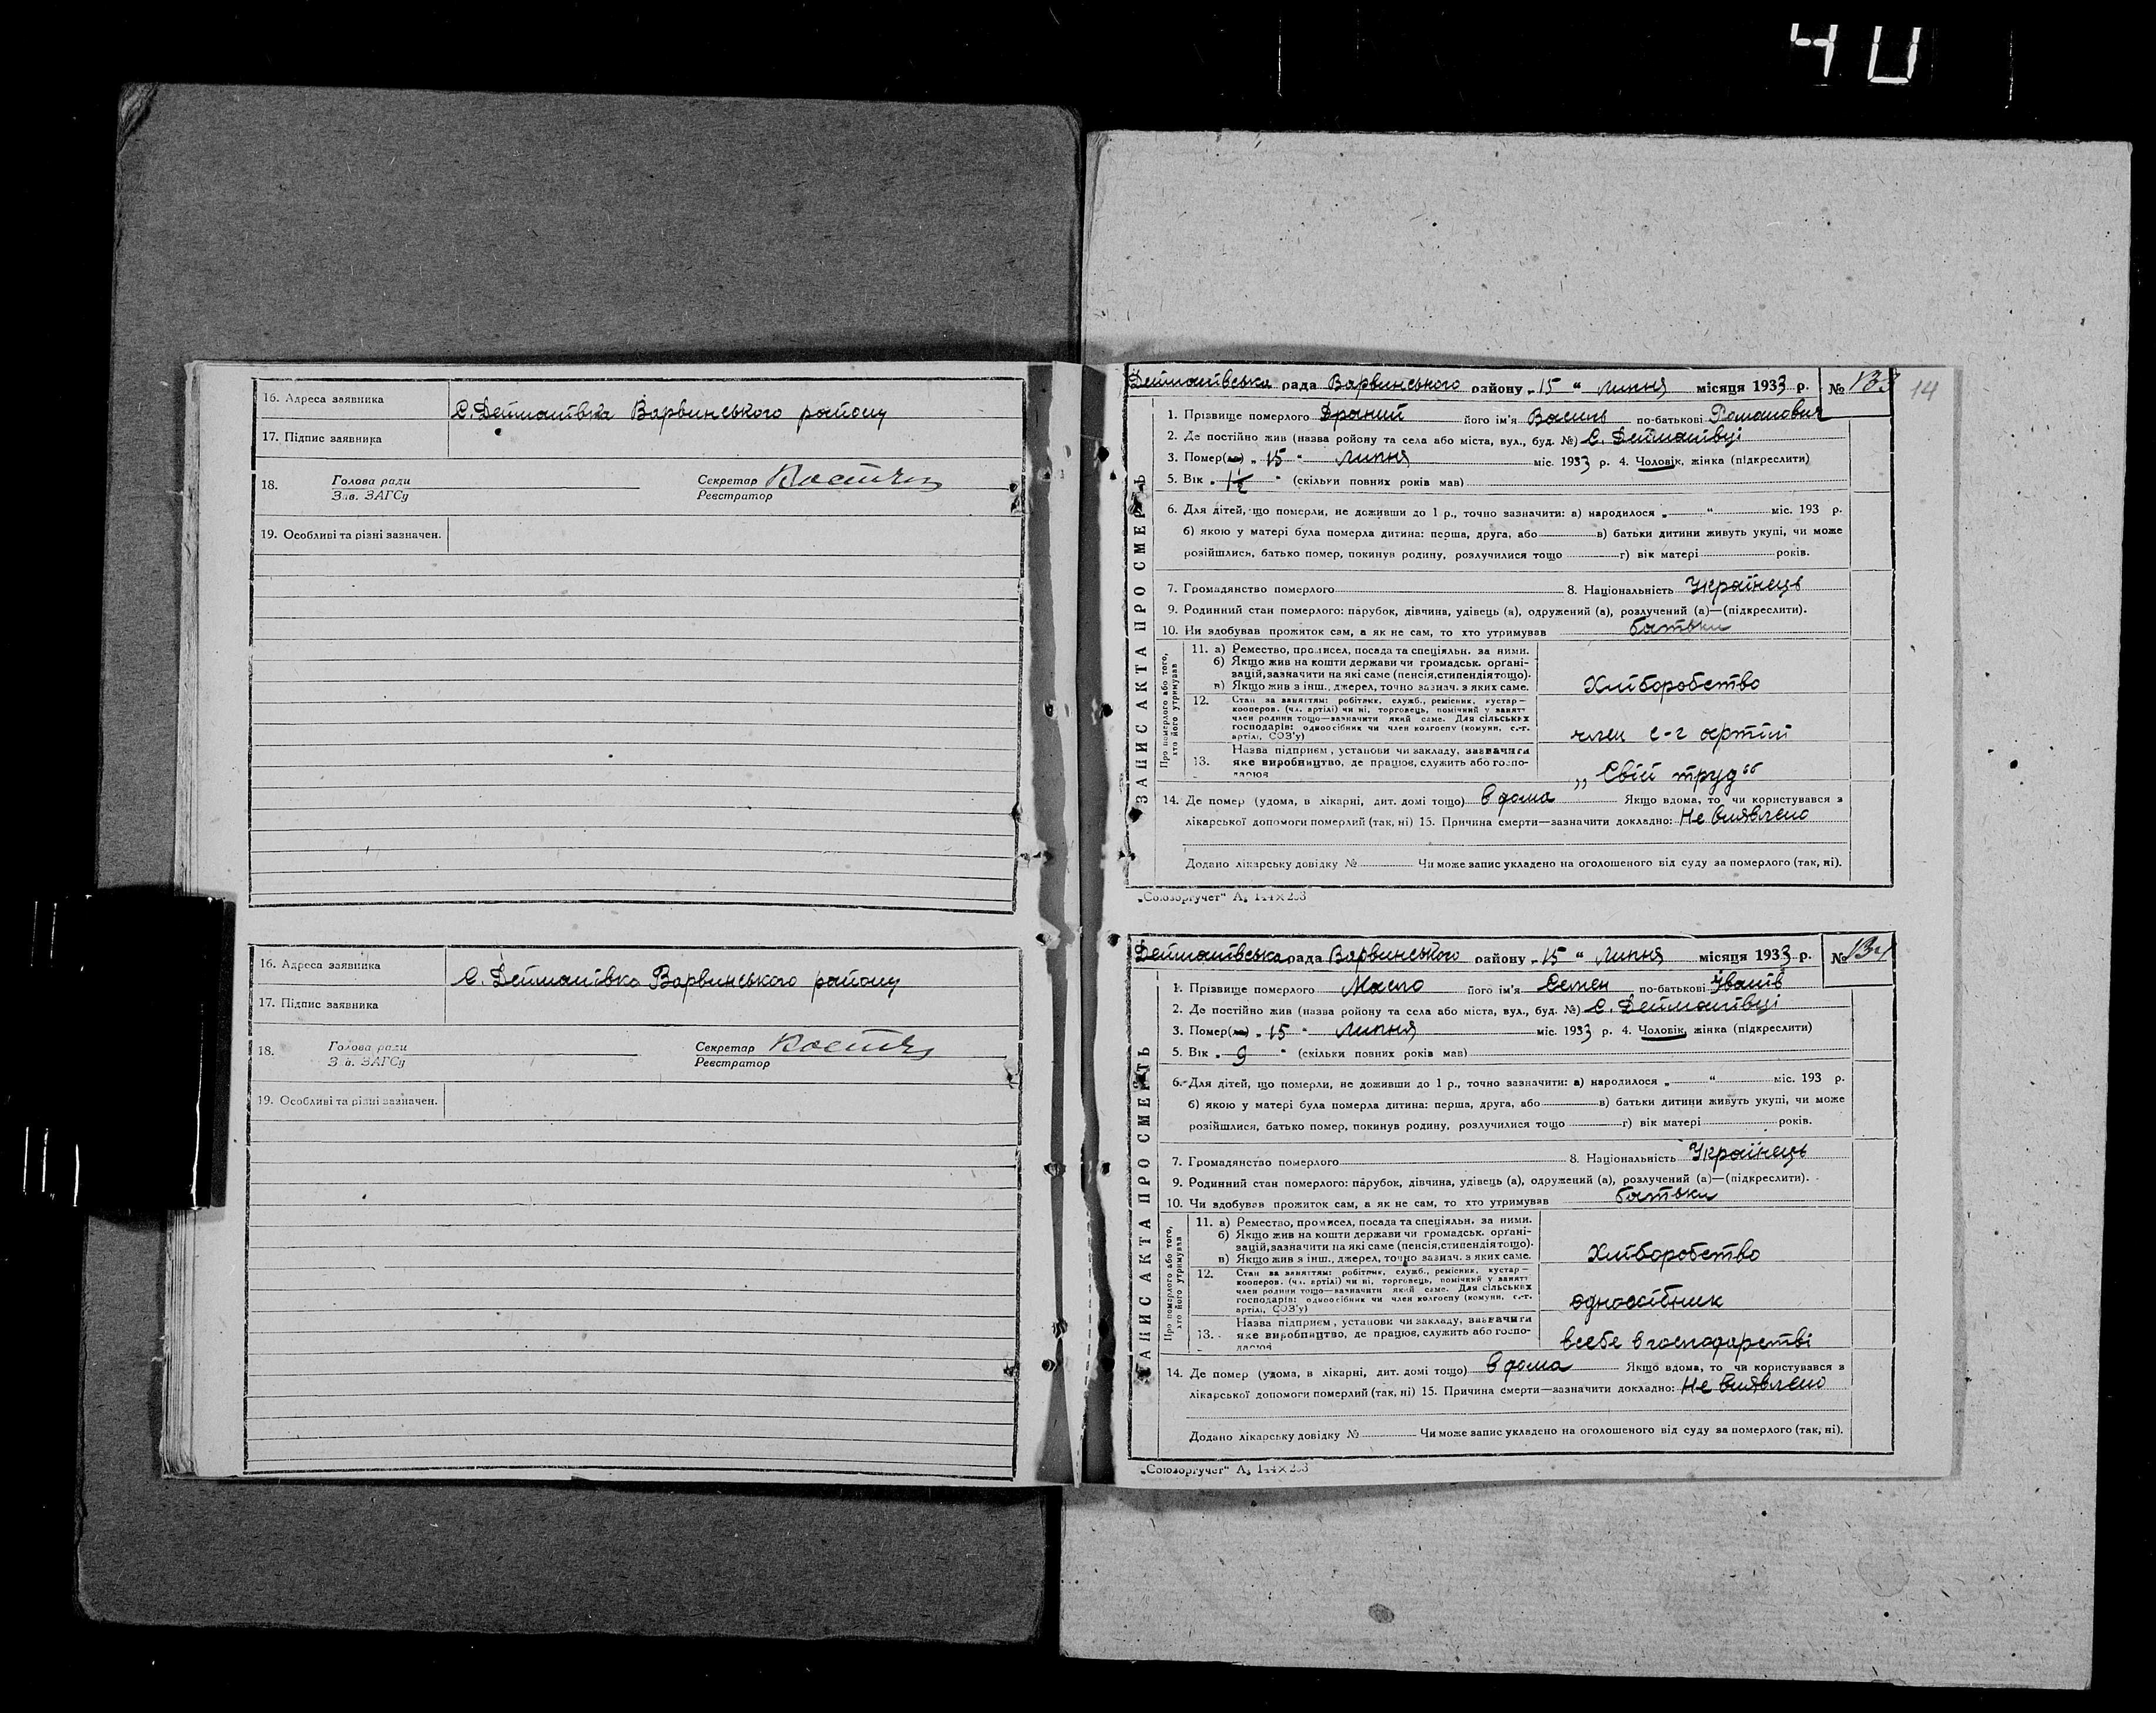 40
16. Адреса заявника
С. Дейманівка Варвинського району
17. Підпис заявника
18. Голова ради Секретар
Зав. ЗАГСу Реєстратор
19. Особливі та різні зазначен.
16. Адреса заявника
С. Дейманівка Варвинського району
17. Підпис заявника
18. Голова ради Секретар
Зав. ЗАГСу Реєстратор
19. Особливі та різні зазначен.
14
ЗАПИС АКТА ПРО СМЕРТЬ
Дейманівська рада Варвинського району „15“ липня місяця 1933 р. № 133
1. Прізвище померлого Драний його ім'я Василь по-батькові Романович
2. Де постійно жив (назва району та села або міста, вул., буд. №) С. Дейманівці
3. Помер(ла) „15“ липня міс. 1933 р. 4. Чоловік, жінка (підкреслити)
5. Вік „1½“ (скільки повних років мав)
6. Для дітей, що померли, не доживши до 1 р., точно зазначити: а) народилося „ “ міс. 193 р.
б) якою у матері була померла дитина: перша, друга, або в) батьки дитини живуть укупі, чи може
розійшлися, батько помер, покинув родину, розлучилися тощо г) вік матері років.
7. Громадянство померлого 8. Національність Українець
9. Родинний стан померлого: парубок, дівчина, удівець (а), одружений (а), розлучений (а)—(підкреслити).
10. Чи здобував прожиток сам, а як не сам, то хто утримував батьки
Про померлого або того, хто його утримував
11. а) Ремество, промисел, посада та спеціяльн. за ними.
б) Якщо жив на кошти держави чи громадськ. органі-
зацій, зазначити на які саме (пенсія, стипендія тощо).
в) Якщо жив з інш., джерел, точно зазнач. з яких саме.
Хліборобство
12. Стан за заняттям: робітник, служб., ремісник, кустар—
кооперов. (чл. артілі) чи ні, торговець, помічний у занятт
член родини тощо—зазначити який саме. Для сільських
господарів: одноосібник чи член колгоспу (комуни, с.-г.
артілі, СОЗ'у)
член с-г артілі
13. Назва підприєм, установи чи закладу, зазначити
яке виробництво, де працює, служить або госпо-
дарює
„Свій труд“
14. Де помер (удома, в лікарні, дит. домі тощо) вдома Якщо вдома, то чи користувався з
лікарської допомоги померлий (так, ні) 15. Причина смерти—зазначити докладно: Не виявлено
Додано лікарську довідку № Чи може запис укладено на оголошеного від суду за померлого (так, ні).
„Союзоргучет“ А₅ 144×203
ЗАПИС АКТА ПРО СМЕРТЬ
Дейманівська рада Варвинського району „15“ липня місяця 1933 р. № 134
1. Прізвище померлого Масло його ім'я Семен по-батькові Іванів
2. Де постійно жив (назва району та села або міста, вул., буд. №) С. Дейманівці
3. Помер(ла) „15“ липня міс. 1933 р. 4. Чоловік, жінка (підкреслити)
5. Вік „9“ (скільки повних років мав)
6. Для дітей, що померли, не доживши до 1 р., точно зазначити: а) народилося „ “ міс. 193 р.
б) якою у матері була померла дитина: перша, друга, або в) батьки дитини живуть укупі, чи може
розійшлися, батько помер, покинув родину, розлучилися тощо г) вік матері років.
7. Громадянство померлого 8. Національність Українець
9. Родинний стан померлого: парубок, дівчина, удівець (а), одружений (а), розлучений (а)—(підкреслити).
10. Чи здобував прожиток сам, а як не сам, то хто утримував батьки
Про померлого або того, хто його утримував
11. а) Ремество, промисел, посада та спеціяльн. за ними.
б) Якщо жив на кошти держави чи громадськ. органі-
зацій, зазначити на які саме (пенсія, стипендія тощо).
в) Якщо жив з інш., джерел, точно зазнач. з яких саме.
Хліборобство
12. Стан за заняттям: робітник, служб., ремісник, кустар—
кооперов. (чл. артілі) чи ні, торговець, помічний у занятт
член родини тощо—зазначити який саме. Для сільських
господарів: одноосібник чи член колгоспу (комуни, с.-г.
артілі, СОЗ'у)
одноосібник
13. Назва підприєм, установи чи закладу, зазначити
яке виробництво, де працює, служить або госпо-
дарює
всебе в господарстві
14. Де помер (удома, в лікарні, дит. домі тощо) вдома Якщо вдома, то чи користувався з
лікарської допомоги померлий (так, ні) 15. Причина смерти—зазначити докладно: Не виявлено
Додано лікарську довідку № Чи може запис укладено на оголошеного від суду за померлого (так, ні).
„Союзоргучет“ А₅ 144×203